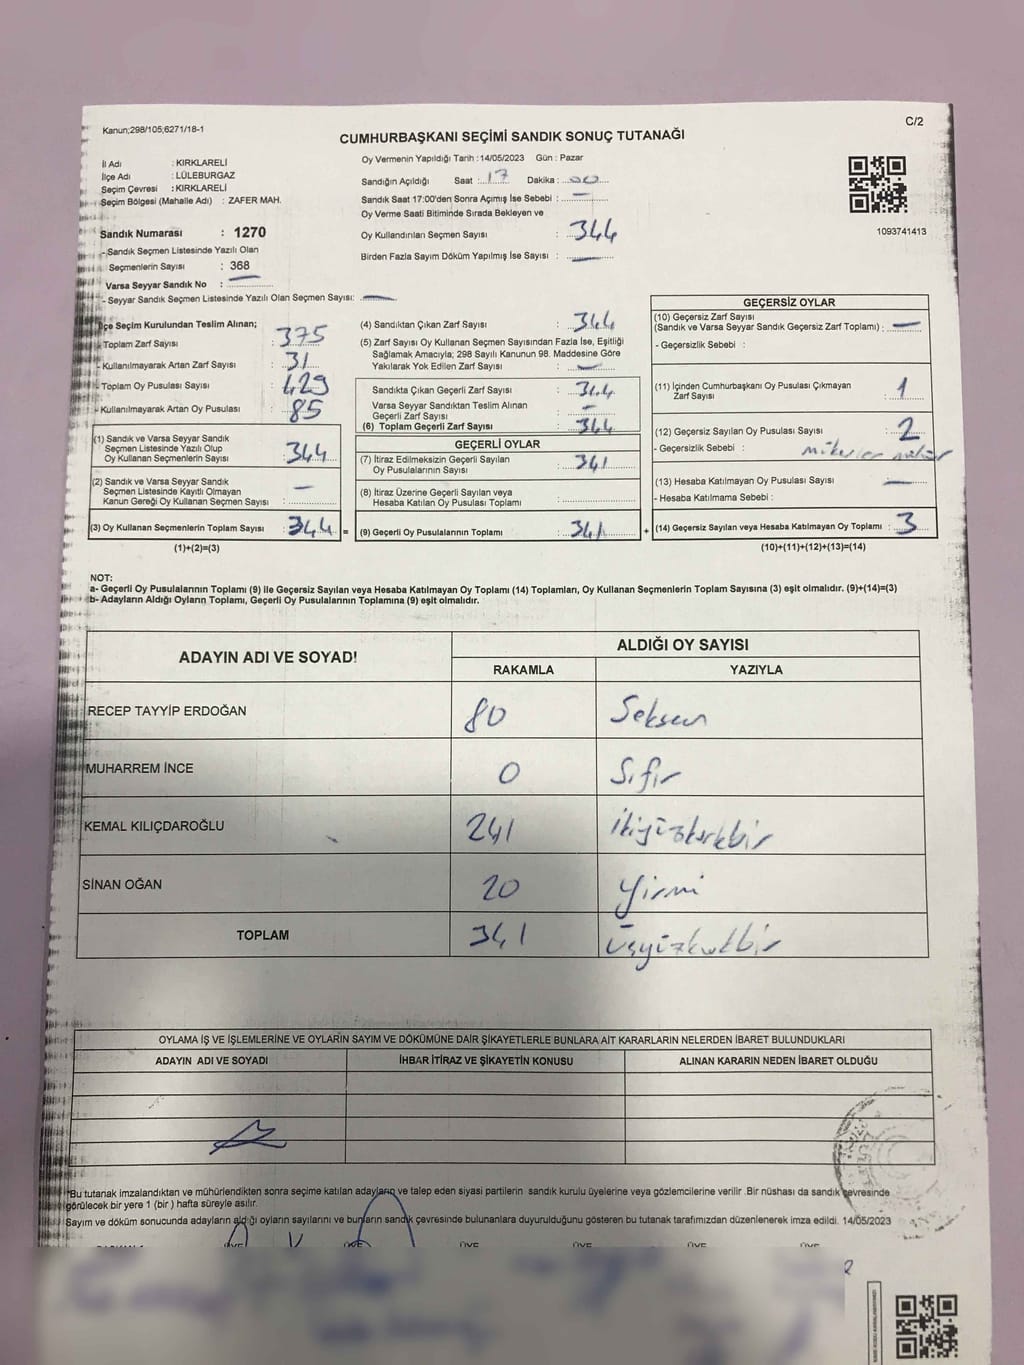 Kanun;298/105;6271/18-1
C/2
CUMHURBAŞKANI SEÇİMİ SANDIK SONUÇ TUTANAĞI
İl Adı : KIRKLARELİ
İlçe Adı : LÜLEBURGAZ
Seçim Çevresi : KIRKLARELİ
Seçim Bölgesi (Mahalle Adı) : ZAFER MAH.
Sandık Numarası : 1270
- Sandık Seçmen Listesinde Yazılı Olan
Seçmenlerin Sayısı : 368
Varsa Seyyar Sandık No :
- Seyyar Sandık Seçmen Listesinde Yazılı Olan Seçmen Sayısı: —
Oy Vermenin Yapıldığı Tarih : 14/05/2023 Gün : Pazar
Sandığın Açıldığı Saat : 17 Dakika : 00
Sandık Saat 17:00'den Sonra Açımış İse Sebebi : —
Oy Verme Saati Bitiminde Sırada Bekleyen ve
Oy Kullandırılan Seçmen Sayısı : 344
Birden Fazla Sayım Döküm Yapılmış İse Sayısı : —
1093741413
İlçe Seçim Kurulundan Teslim Alınan;
- Toplam Zarf Sayısı : 375
- Kullanılmayarak Artan Zarf Sayısı : 31
- Toplam Oy Pusulası Sayısı : 429
- Kullanılmayarak Artan Oy Pusulası : 85
(1) Sandık ve Varsa Seyyar Sandık
Seçmen Listesinde Yazılı Olup
Oy Kullanan Seçmenlerin Sayısı : 344
(2) Sandık ve Varsa Seyyar Sandık
Seçmen Listesinde Kayıtlı Olmayan
Kanun Gereği Oy Kullanan Seçmen Sayısı : —
(3) Oy Kullanan Seçmenlerin Toplam Sayısı : 344 =
(1)+(2)=(3)
(4) Sandıktan Çıkan Zarf Sayısı : 344
(5) Zarf Sayısı Oy Kullanan Seçmen Sayısından Fazla İse, Eşitliği
Sağlamak Amacıyla; 298 Sayılı Kanunun 98. Maddesine Göre
Yakılarak Yok Edilen Zarf Sayısı : —
Sandıkta Çıkan Geçerli Zarf Sayısı : 344
Varsa Seyyar Sandıktan Teslim Alınan
Geçerli Zarf Sayısı : —
(6) Toplam Geçerli Zarf Sayısı : 344
GEÇERLİ OYLAR
(7) İtiraz Edilmeksizin Geçerli Sayılan
Oy Pusulalarının Sayısı : 341
(8) İtiraz Üzerine Geçerli Sayılan veya
Hesaba Katılan Oy Pusulaları Toplamı :
(9) Geçerli Oy Pusulalarının Toplamı : 341 +
GEÇERSİZ OYLAR
(10) Geçersiz Zarf Sayısı
(Sandık ve Varsa Seyyar Sandık Geçersiz Zarf Toplamı) : —
- Geçersizlik Sebebi :
(11) İçinden Cumhurbaşkanı Oy Pusulası Çıkmayan
Zarf Sayısı : 1
(12) Geçersiz Sayılan Oy Pusulası Sayısı : 2
- Geçersizlik Sebebi :
(13) Hesaba Katılmayan Oy Pusulası Sayısı : —
- Hesaba Katılmama Sebebi :
(14) Geçersiz Sayılan veya Hesaba Katılmayan Oy Toplamı : 3
(10)+(11)+(12)+(13)=(14)
NOT:
a- Geçerli Oy Pusulalarının Toplamı (9) ile Geçersiz Sayılan veya Hesaba Katılmayan Oy Toplamı (14) Toplamları, Oy Kullanan Seçmenlerin Toplam Sayısına (3) eşit olmalıdır. (9)+(14)=(3)
b- Adayların Aldığı Oyların Toplamı, Geçerli Oy Pusulalarının Toplamına (9) eşit olmalıdır.
ADAYIN ADI VE SOYADI
ALDIĞI OY SAYISI
RAKAMLA YAZIYLA
RECEP TAYYİP ERDOĞAN 80 Seksen
MUHARREM İNCE 0 Sıfır
KEMAL KILIÇDAROĞLU 241 ikiyüzkırkbir
SİNAN OĞAN 20 yirmi
TOPLAM 341 üçyüzkırkbir
OYLAMA İŞ VE İŞLEMLERİNE VE OYLARIN SAYIM VE DÖKÜMÜNE DAİR ŞİKAYETLERLE BUNLARA AİT KARARLARIN NELERDEN İBARET BULUNDUKLARI
ADAYIN ADI VE SOYADI İHBAR İTİRAZ VE ŞİKAYETİN KONUSU ALINAN KARARIN NEDEN İBARET OLDUĞU
*Bu tutanak imzalandıktan ve mühürlendikten sonra seçime katılan adayların ve talep eden siyasi partilerin sandık kurulu üyelerine veya gözlemcilerine verilir .Bir nüshası da sandık çevresinde
görülecek bir yere 1 (bir ) hafta süreyle asılır.
Sayım ve döküm sonucunda adayların aldığı oyların sayılarını ve bunların sandık çevresinde bulunanlara duyurulduğunu gösteren bu tutanak tarafımızdan düzenlenerek imza edildi. 14/05/2023
ÜYE ÜYE ÜYE ÜYE ÜYE ÜYE